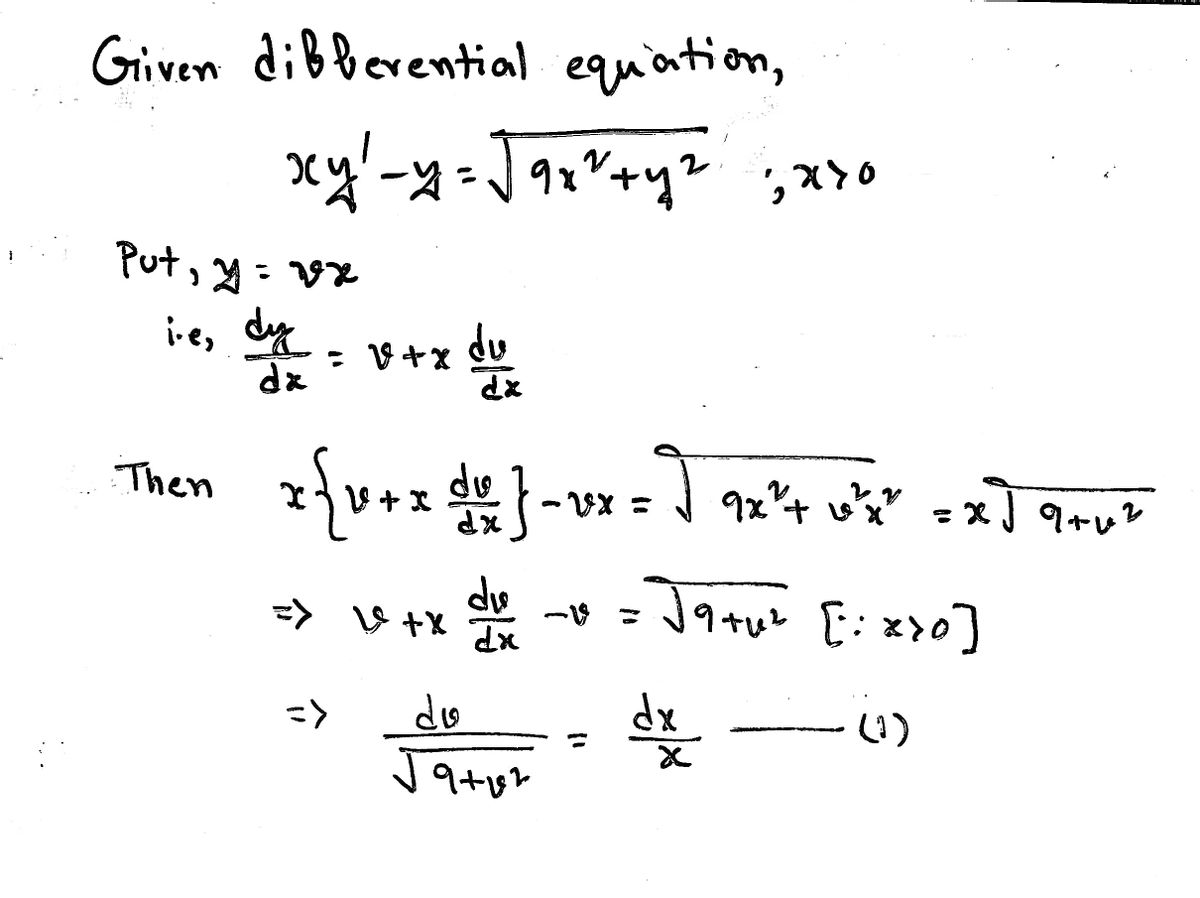 Given differential equation,
xy' - y = √(9x² + y²) ; x > 0
Put, y = vx
i.e, dy/dx = v + x dv/dx
Then x{v + x dv/dx} - vx = √(9x² + v²x²) = x√(9 + v²)
=> v + x dv/dx - v = √(9 + v²) [∵ x > 0]
=> dv/√(9 + v²) = dx/x —— (1)